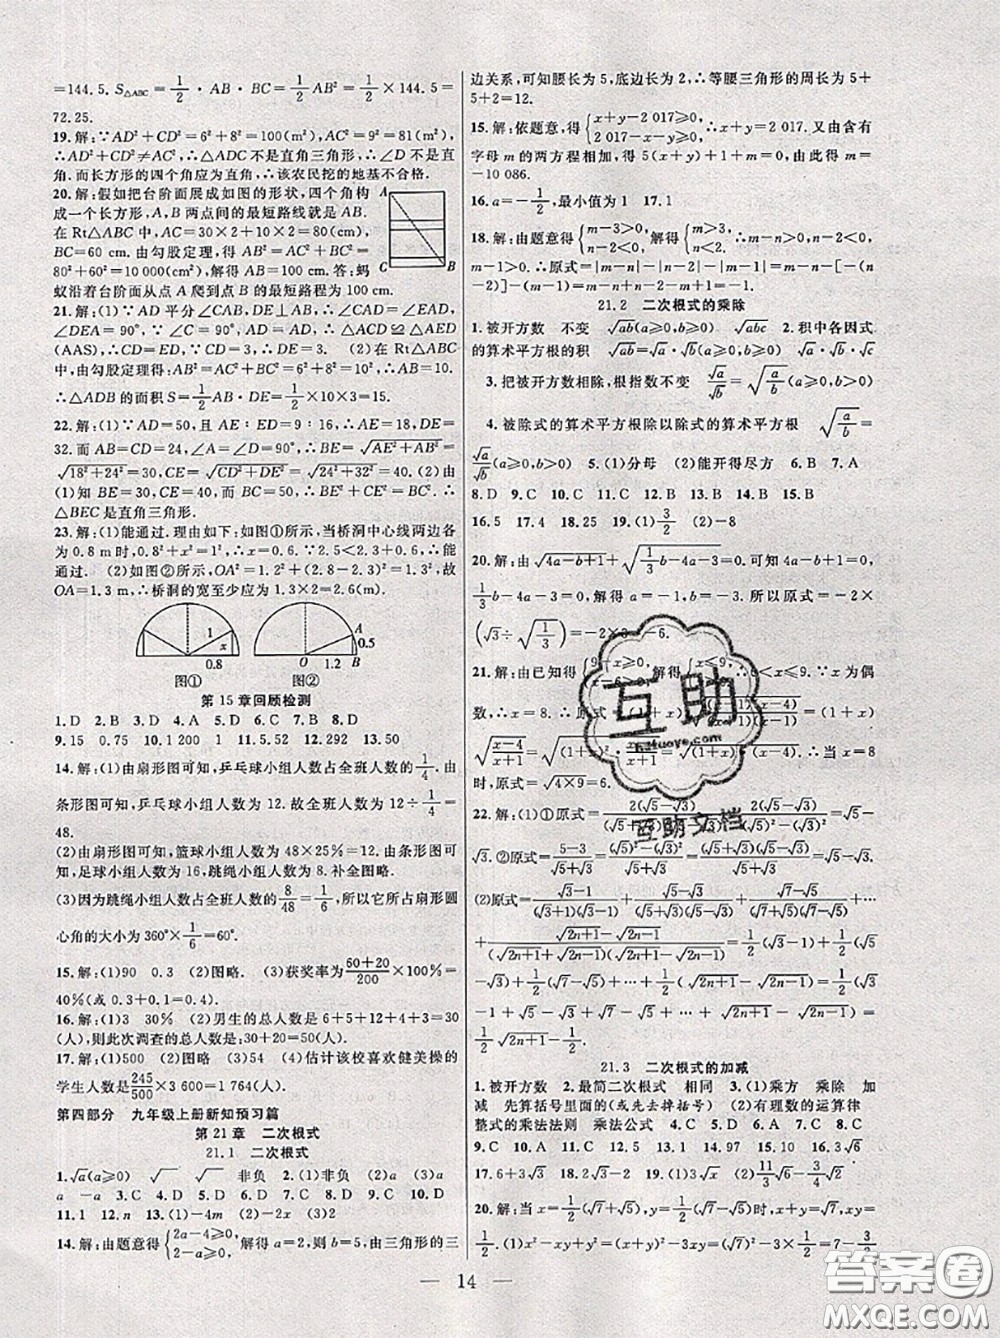 =144.5. S△ABC=1/2·AB·BC=1/2AB²=1/2×144.5=
72.25.
19.解:∵AD²+CD²=6²+8²=100(m²),AC²=9²=81(m²),
∴AD²+CD²≠AC²,∴△ADC 不是直角三角形,∴∠D 不是直
角.而长方形的四个角应为直角,∴该农民挖的地基不合格.
20.解:假如把台阶面展成如图的形状,四个角构
成一个长方形,A,B 两点间的最短路线就是 AB.
在 Rt△ABC 中,AC=30×2+10×2=80(cm),
BC=60 cm.由勾股定理,得 AB²=AC²+BC²=
80²+60²=10 000(cm²),解得 AB=100 cm.答:蚂
蚁沿着台阶面从点 A 爬到点 B 的最短路程为 100 cm.
A
C B
21.解:(1)∵AD 平分∠CAB,DE⊥AB,∴∠CAD=∠EAD,
∠DEA=90°,∵∠C=90°,AD=AD,∴△ACD≌△AED
(AAS),∴CD=DE,∵CD=3,∴DE=3. (2)在 Rt△ABC
中,由勾股定理得:AB²=AC²+BC²=6²+8²=100,∴AB=10.
∴△ADB 的面积 S=1/2AB·DE=1/2×10×3=15.
22.解:(1)∵AD=50,且 AE∶ED=9∶16,∴AE=18,DE=
32.而 AB=CD=24,∠A=∠D=90°,∴BE=√(AE²+AB²)=
√(18²+24²)=30,CE=√(CD²+DE²)=√(24²+32²)=40. (2)由
(1)知:BE=30,CE=40,BC=50,∴BE²+CE²=BC².∴
△BEC 是直角三角形.
23.解:(1)能通过.理由如下:如图①所示,当桥洞中心线两边各
为 0.8 m 时,由勾股定理,得 x²+0.8²=1²,∴x=0.6,∴能
通过. (2)如图②所示,OA²=1.2²+(2.8-2.3)²=1.3²,故
OA=1.3 m,∴桥洞的宽至少应为 1.3×2=2.6(m).
1 x 0.8
A 0.5 O 1.2 B
图① 图②
第 15 章回顾检测
1.D 2.D 3.C 4.A 5.D 6.C 7.B 8.D
9.15 0.75 10.1 200 1 11.5.52 12.292 13.50
14.解:(1)由扇形图可知,乒乓球小组人数占全班人数的1/4.由
条形图可知,乒乓球小组人数为 12.故全班人数为 12÷1/4=
48.
(2)由扇形图可知,篮球小组人数为 48×25%=12.由条形图可知,
足球小组人数为 16,跳绳小组人数为 8.补全图略.
(3)因为跳绳小组人数占全班人数的8/48=1/6,所以它所占扇形圆
心角的大小为 360°×1/6=60°.
15.解:(1)90 0.3 (2)图略. (3)获奖率为(60+20)/200×100%=
40%(或 0.3+0.1=0.4).
16.解:(1)3 30% (2)男生的总人数是 6+5+12+4+3=30
(人),则此次调查的总人数是:30+20=50(人).
17.解:(1)500 (2)图略 (3)54 (4)估计该校喜欢健美操的
学生人数是245/500×3 600=1 764(人).
第四部分 九年级上册新知预习篇
第 21 章 二次根式
21.1 二次根式
1.√a(a≥0) √ √ 非负 2.(1)非负 (2)a (3)a
a -a 3.C 4.D 5.D 6.A 7.D 8.C 9.C 10.D
11.1 12.n 13.(1)-4m (2)-2x (3)2
14.解:由题意得{2a-4≥0, 2-a≥0, 解得 a=2,则 b=5,由三角形的三
边关系,可知腰长为 5,底边长为 2,∴等腰三角形的周长为 5+
5+2=12.
15.解:依题意,得{x+y-2 017≥0, 2 017-x-y≥0, ∴x+y=2 017.又由含有
字母 m 的两方程相加,得 5(x+y)+1+m=0,由此得 m=
-10 086.
16.a=-1/2,最小值为 1 17.1
18.解:由题意得{m-3>0, n-2<0, 解得{m>3, n<2. ∴m-n>0,n-2<0,
m-1>0.∴原式=|m-n|-|n-2|-|m-1|=m-n-[-(n
-2)]-(m-1)=m-n+n-2-m+1=-1.
21.2 二次根式的乘除
1.被开方数 不变 √ab(a≥0,b≥0) √abc 2.积中各因式
的算术平方根的积 √ab=√a·√b(a≥0,b≥0) √a·√b·√c
3.把被开方数相除,根指数不变 √a/√b=√(a/b)(a≥0,b>0)
4.被除式的算术平方根除以除式的算术平方根 √(a/b)=
√a/√b(a≥0,b>0) 5.(1)分母 (2)能开得尽方 6.B 7.A
8.D 9.C 10.D 11.C 12.D 13.C 14.D 15.B
16.5 17.4 18.25 19.(1)3/2 (2)-8
20.解:由√(4a-b+1)+√(1/3b-4a-3)=0.可知 4a-b+1=0,
1/3b-4a-3=0,解得 a=-1,b=-3.所以原式=-2×
(√3÷√(1/3))=-2×3=-6.
21.解:由已知得{9-x≥0, x-6>0, 解得{x≤9, ∴6<x≤9.∵x 为偶
数,∴x=8.原式=(1+x)
√((x-4)/(x+1))=√((1+x)(x-4)).∴当 x=8
时,原式=√(4×9)=6.
22.解:(1)①原式=2(√5-√3)/ 2(√5-√3)/((√5)²-(√3)²)=√5-
√3.②原式=(5-3)/(√5+√3)=((√5)²-(√3)²)/(√5+√3)=√5-√3.
(2)原式=(√3-1)/((√3+1)(√3-1))+(√5-√3)/((√5+√3)(√5-√3))+(√7-√5)/((√7+√5)(√7-√5))+…
+(√(2n+1)-√(2n-1))/((√(2n+1)+√(2n-1))(√(2n+1)-√(2n-1)))=1/2(√3-1)+1/2(√5
-√3)+1/2(√7-√5)+…+1/2(√(2n+1)-√(2n-1))=1/2(√3
-1+√5-√3+√7-√5+…+√(2n+1)-√(2n-1))=1/2√(2n+1)
-1/2.
21.3 二次根式的加减
1.被开方数 2.最简二次根式 相同 3.(1)乘方 乘除 加
减 先算括号里面的(或先去掉括号) (2)有理数的运算律
整式的乘法法则 乘法公式 4.C 5.C 6.D 7.C 8.C
9.C 10.A 11.D 12.A 13.C 14.2 15.3√x 16.3√6
17.6+3√3 18.2√3-2 19.(1)2√3-√2 (2)11/3√3-4/3√6
20.解:当 x=1/2(√7+√5),y=1/2(√7-√5)时,x+y=√7,xy=
1/2.(1)x²-xy+y²=(x+y)²-3xy=(√7)²-3×1/2=
14
互助
互助文档
答案圈
MXQE.COM